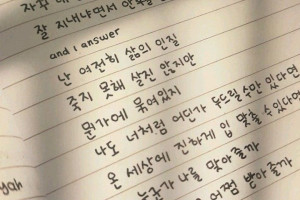 자꾸
잘 지내냐면서 안부를
and i answer
난 여전히 삶의 인질
죽지 못해 살진 않지만
뭔가에 묶여있지
나도 너처럼 어딘가 두드릴 수만 있다면
온 세상에 진하게 입 맞출 수 있다면
누군가 나를 맞아줄까
어쩜 받아줄까
yah